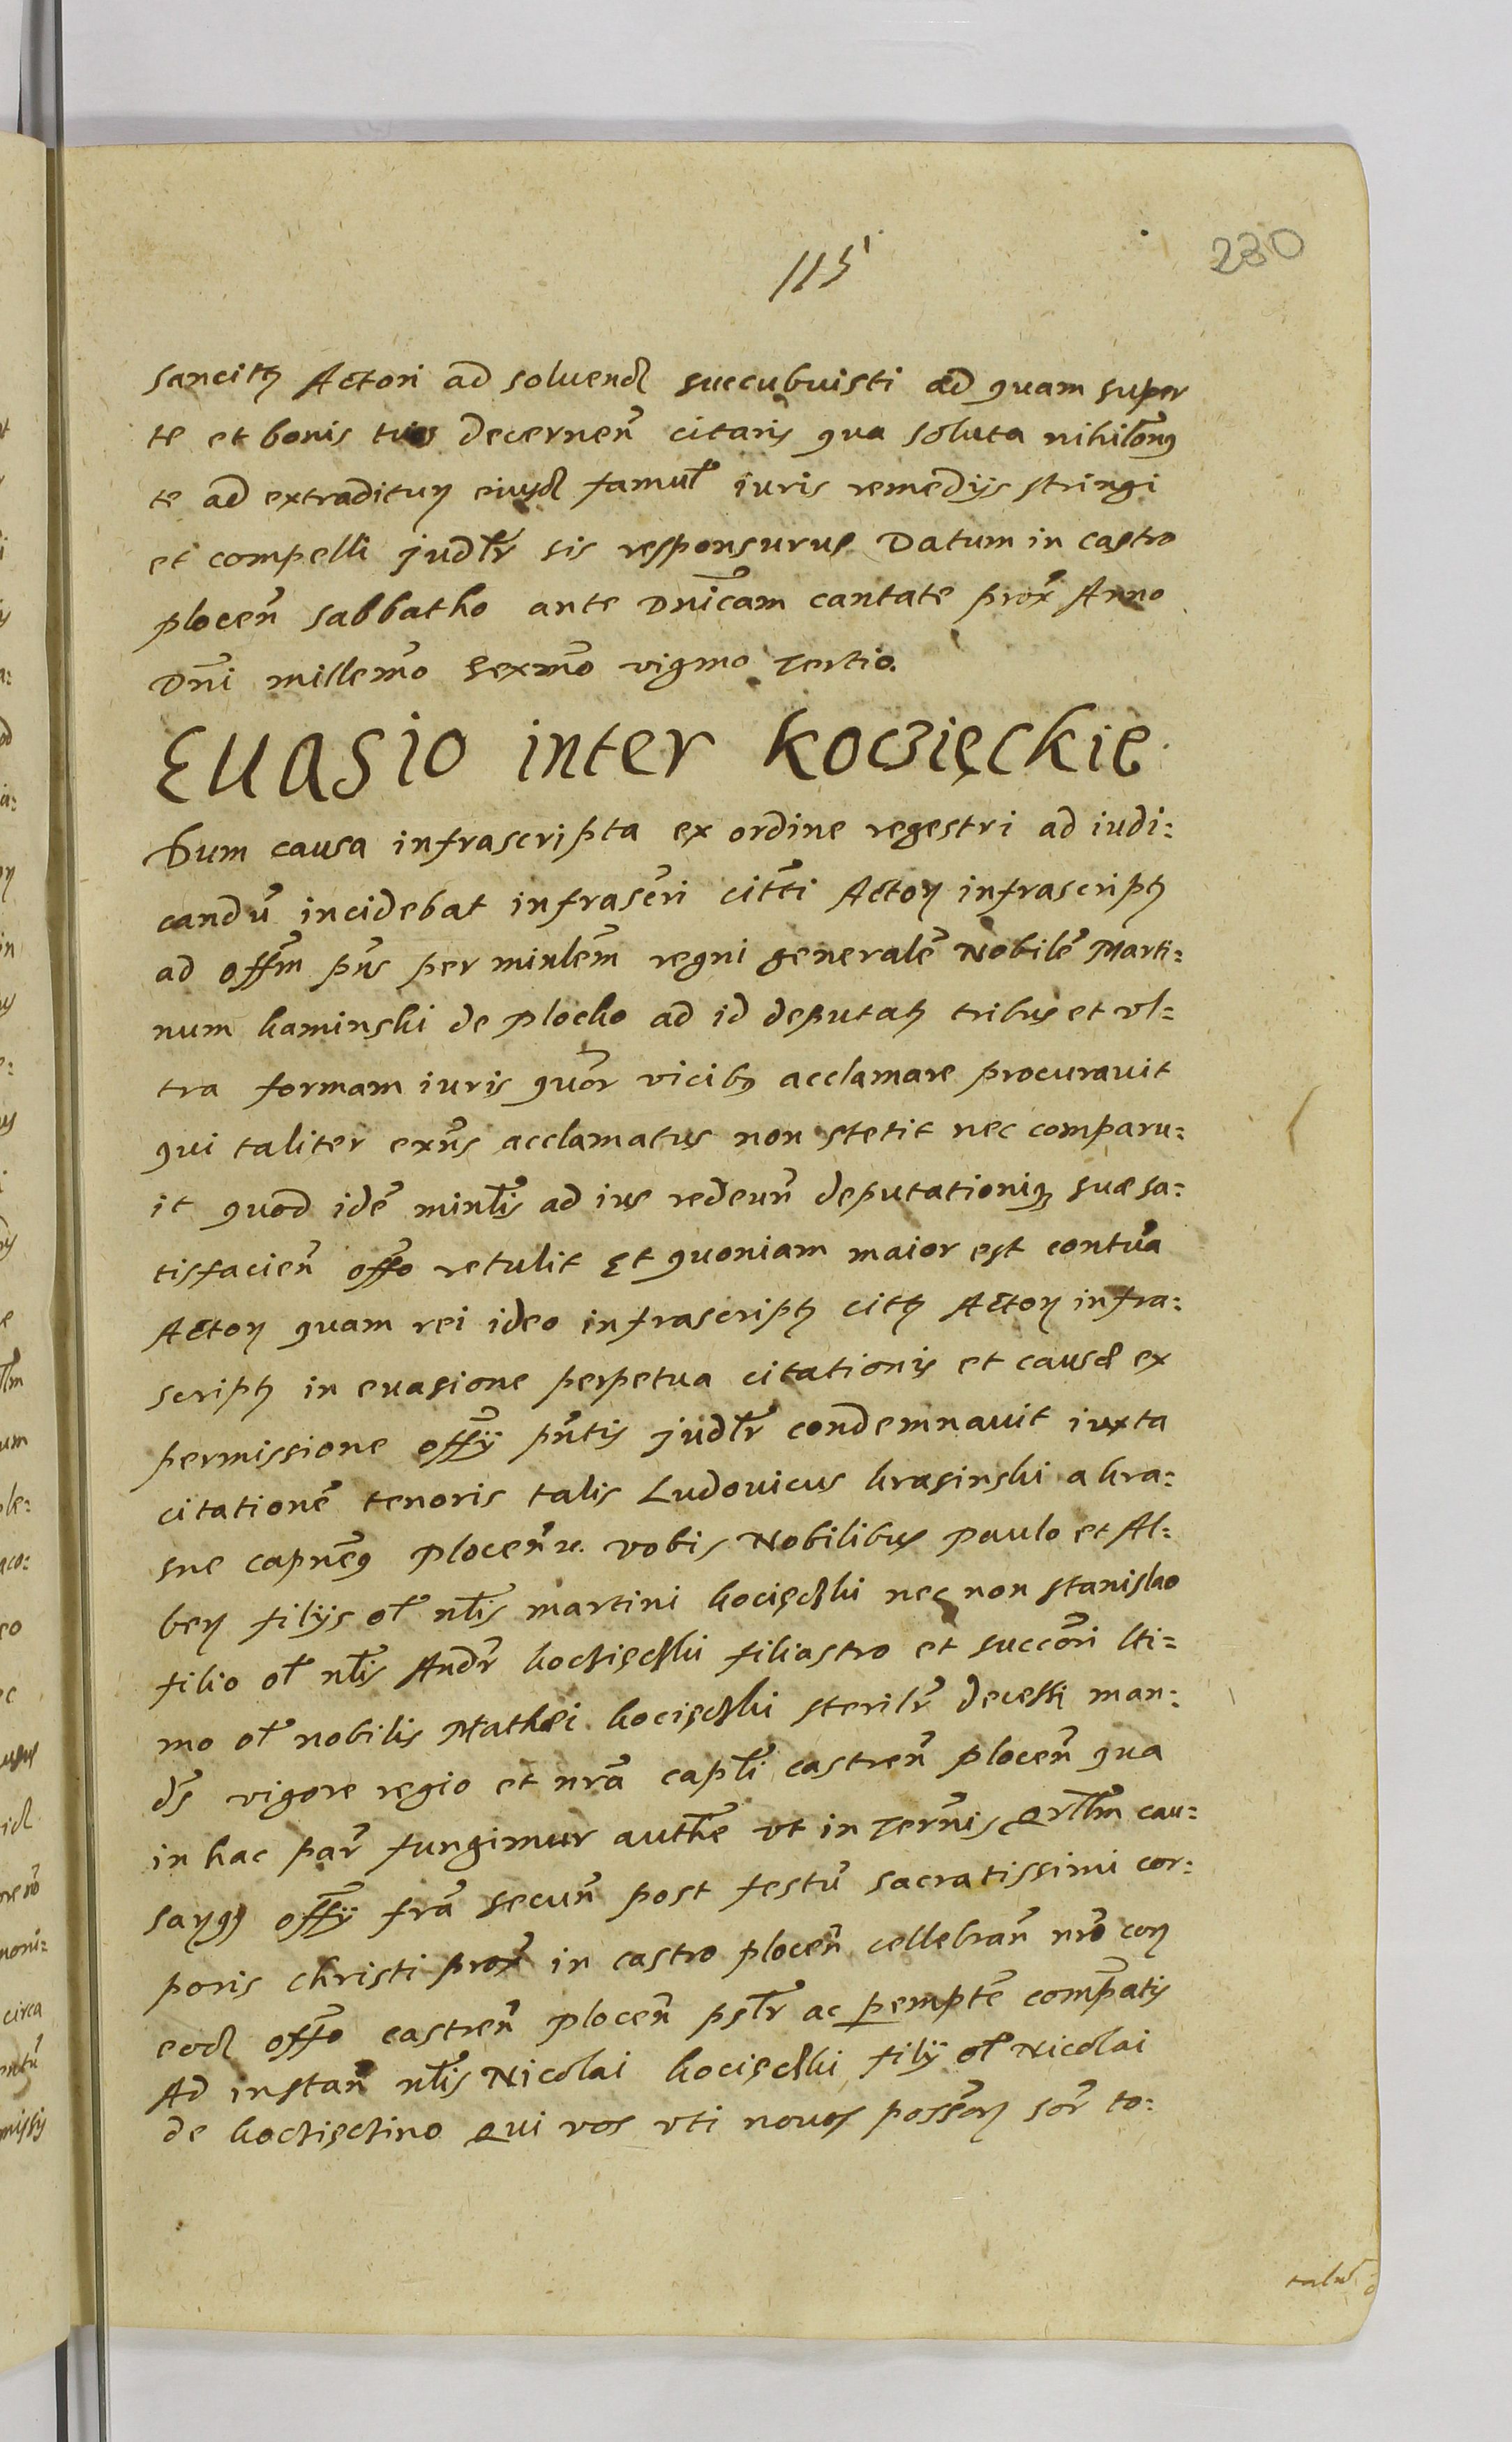 115
230
sancitꝫ Actori ad soluend succubuisti ad quam super
te et bonis tuis decernen̄ citaris qua soluta nihilom̄9
te ad extraditur eiusd famul̄ iuris remedijs stringi
et compelli judlr̄ sis responsurus Datum in castro
plocen̄ sabbatho ante Dnīcam cantate prox̄ Anno
Dnī millem̄o Sexm̄o vigmo Tertio.
Euasio inter Koczięckie
Dum causa infrascripta ex ordine regestri ad iudi:
candū incidebat infrascri cittī Actor infrascriptꝫ
ad offm̄ pn̄s per minlem̄ regni generalē Nobilē Marti:
num kaminski de Plocko ad id deputatꝫ tribus et vl:
tra formam iuris quor̄ vicib9 acclamare procurauit
qui taliter exn̄s acclamatus non stetit nec comparu:
it quod idē minlis̄ ad ius redeun̄ deputationiqꝫ suæ sa:
tisfacien̄ offo̅ retulit Et quoniam maior est contua̅
Actor quam rei ideo infrascriptꝫ cittꝫ Actor infra:
scriptꝫ in euasione perpetua citationis et causæ ex
permissione offij̅ pn̄tis judlr̄ condemnauit iuxta
citationē tenoris talis Ludouicus krasinski a kra:
sne capnē9 Plocen̄ &c. vobis Nobilibus Paulo et Al:
ber filijs ol̄ nlis̄ martini kocięcki nec non stanislao
filio ol̄ nlis̄ Andr̄ koczięcki filiastro et succorī lti:
mo ol̄ nobilis Mathei kocięcki sterilr̄ decessi man:
ds̄ vigore regio et nrā caplī castren̄ plocen̄ qua
in hac par̄ fungimur authē vt in Termīs qrllm̄ cau:
sarqꝫ offij̅ frā secun̄ post festū sacratissimi cor:
poris christi prox̄ in castro plocen̄ cellebran̄ nrō cor
eod offo̅ castren̄ plocen̄ pslr̄ ac pemptē comp̄atis
Ad instan̄ nlis̄ Nicolai kocięcki filij ol̄ Nicolai
de koczięczino Qui vos vti nouos possor̄ sor̄ to: